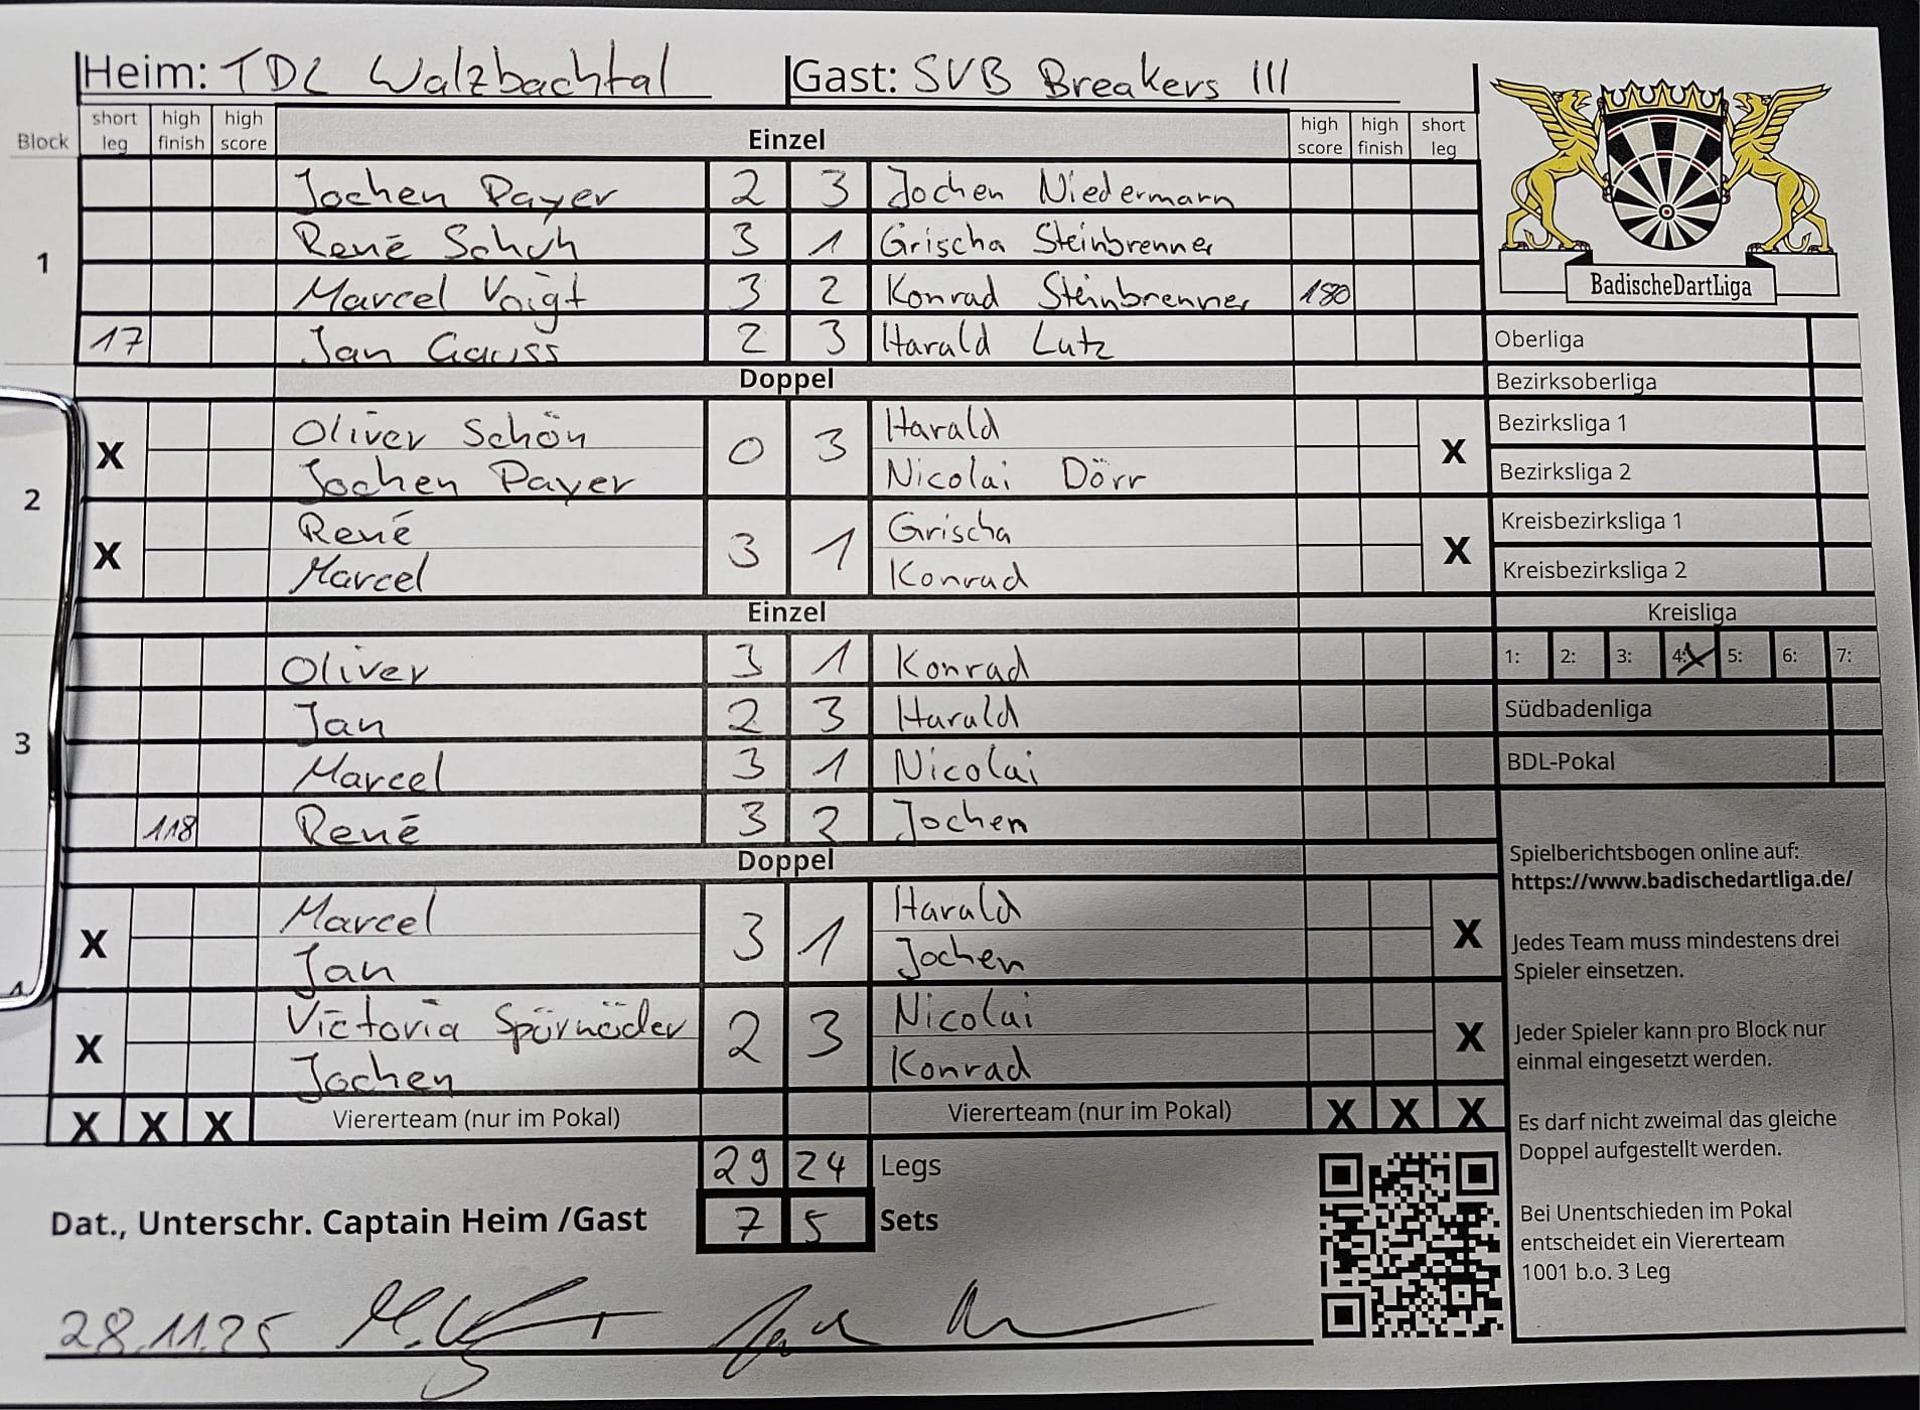 Heim: TDL Walzbachtal Gast: SVB Breakers III
Block short leg high finish high score Einzel high score high finish short leg
1
Jochen Payer 2 3 Jochen Niedermann
René Schuh 3 1 Grischa Steinbrenner
Marcel Voigt 3 2 Konrad Steinbrenner 180
17 Jan Gauss 2 3 Harald Lutz
Doppel
2
X Oliver Schön 0 3 Harald X
Jochen Payer Nicolai Dörr
X René 3 1 Grischa X
Marcel Konrad
Einzel
3
Oliver 3 1 Konrad
Jan 2 3 Harald
Marcel 3 1 Nicolai
118 René 3 2 Jochen
Doppel
X Marcel 3 1 Harald X
Jan Jochen
X Victoria 2 3 Nicolai X
Jochen Konrad
X X X Viererteam (nur im Pokal) Viererteam (nur im Pokal) X X X
29 24 Legs
Dat., Unterschr. Captain Heim /Gast 7 5 Sets
28.11.25
BadischeDartLiga
Oberliga
Bezirksoberliga
Bezirksliga 1
Bezirksliga 2
Kreisbezirksliga 1
Kreisbezirksliga 2
Kreisliga
1: 2: 3: 4: X 5: 6: 7:
Südbadenliga
BDL-Pokal
Spielberichtsbogen online auf:
https://www.badischedartliga.de/
Jedes Team muss mindestens drei
Spieler einsetzen.
Jeder Spieler kann pro Block nur
einmal eingesetzt werden.
Es darf nicht zweimal das gleiche
Doppel aufgestellt werden.
Bei Unentschieden im Pokal
entscheidet ein Viererteam
1001 b.o. 3 Leg